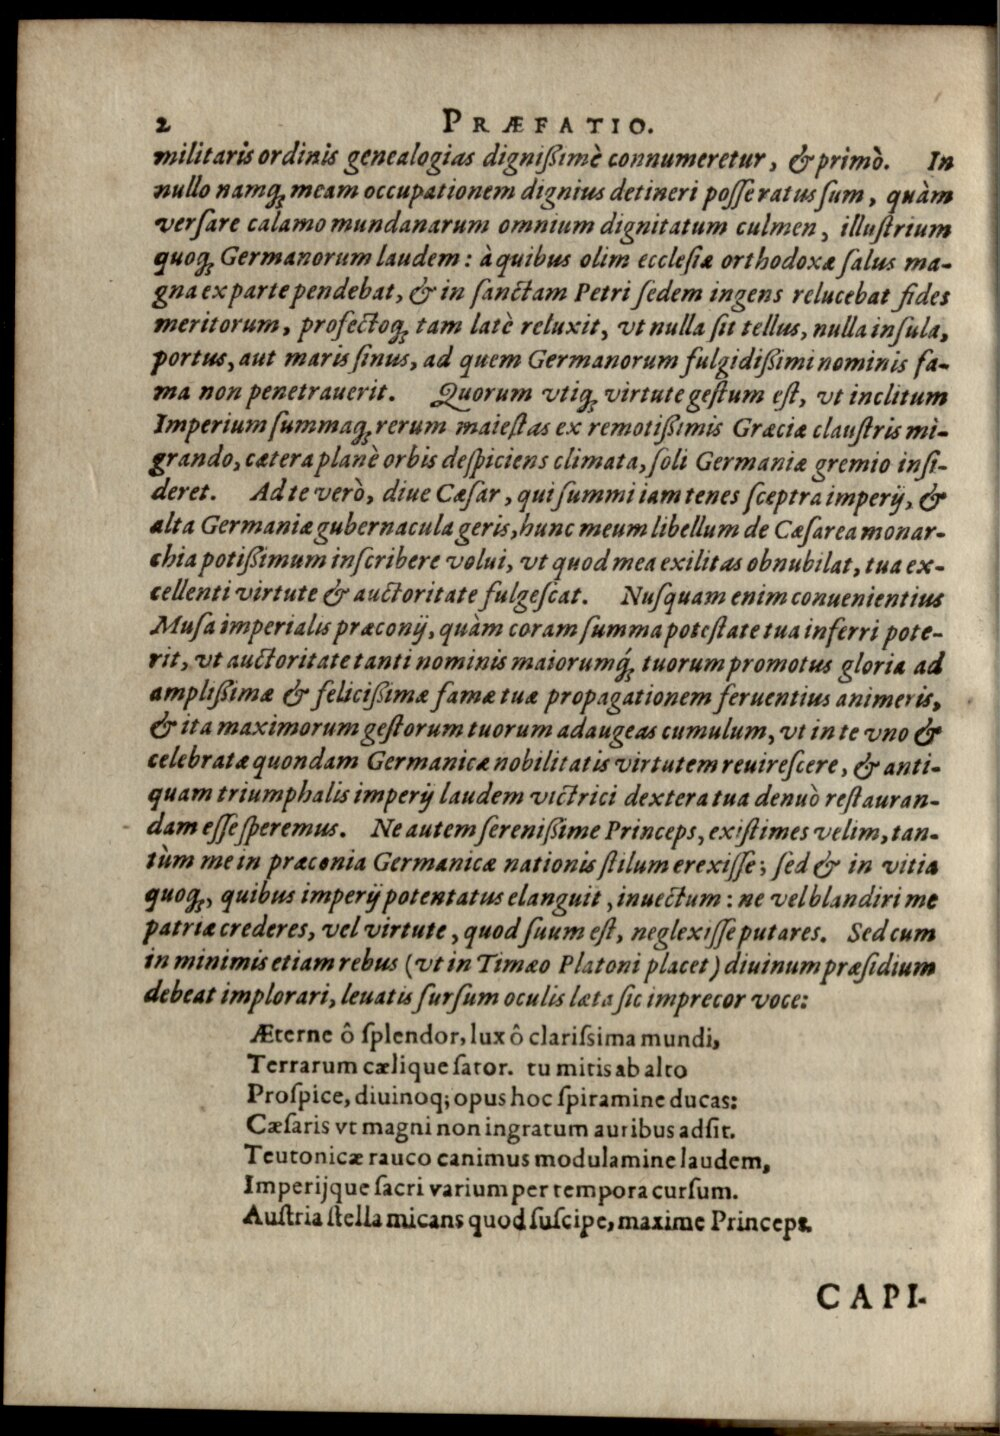 2 PRÆFATIO.
militaris ordinis genealogias dignißimè connumeretur, & primò. In
nullo namq́ꝫ meam occupationem dignius detineri poſſe ratus ſum, quàm
verſare calamo mundanarum omnium dignitatum culmen, illuſtrium
quoqꝫ Germanorum laudem: à quibus olim eccleſiæ orthodoxæ ſalus ma-
gna ex parte pendebat, & in ſanctam Petri ſedem ingens relucebat fides
meritorum, profectoqꝫ tam latè reluxit, vt nulla ſit tellus, nulla inſula,
portus, aut maris ſinus, ad quem Germanorum fulgidißimi nominis fa-
ma non penetrauerit. Quorum vtiqꝫ virtute geſtum eſt, vt inclitum
Imperium ſummaqꝫ rerum maieſtas ex remotißimis Græciæ clauſtris mi-
grando, cætera planè orbis deſpiciens climata, ſoli Germaniæ gremio inſi-
deret. Ad te verò, diue Cæſar, qui ſummi iam tenes ſceptra imperij, &
alta Germaniæ gubernacula geris, hunc meum libellum de Cæſarea monar-
chia potißimum inſcribere volui, vt quod mea exilitas obnubilat, tua ex-
cellenti virtute & auctoritate fulgeſcat. Nuſquam enim conuenientius
Muſa imperialis præconij, quàm coram ſumma poteſtate tua inferri pote-
rit, vt auctoritate tanti nominis maiorumq́ꝫ tuorum promotus gloria ad
amplißimæ & felicißimæ famæ tuæ propagationem feruentius animeris,
& ita maximorum geſtorum tuorum adaugeas cumulum, vt in te vno &
celebratæ quondam Germanicæ nobilitatis virtutem reuireſcere, & anti-
quam triumphalis imperij laudem victrici dextera tua denuò reſtauran-
dam eſſe ſperemus. Ne autem ſerenißime Princeps, exiſtimes velim, tan-
tùm me in præconia Germanicæ nationis ſtilum erexiſſe; ſed & in vitia
quoqꝫ, quibus imperij potentatus elanguit, inuectum: ne vel blandiri me
patriæ crederes, vel virtute, quod ſuum eſt, neglexiſſe putares. Sed cum
in minimis etiam rebus (vt in Timæo Platoni placet) diuinum præſidium
debeat implorari, leuatis ſurſum oculis læta ſic imprecor voce:
Æterne ô ſplendor, lux ô clariſsima mundi,
Terrarum cælique ſator. tu mitis ab alto
Proſpice, diuinoq; opus hoc ſpiramine ducas:
Cæſaris vt magni non ingratum auribus adſit.
Teutonicæ rauco canimus modulamine laudem,
Imperijque ſacri varium per tempora curſum.
Auſtria ſtella micans quod ſuſcipe, maxime Princeps.
CAPI-